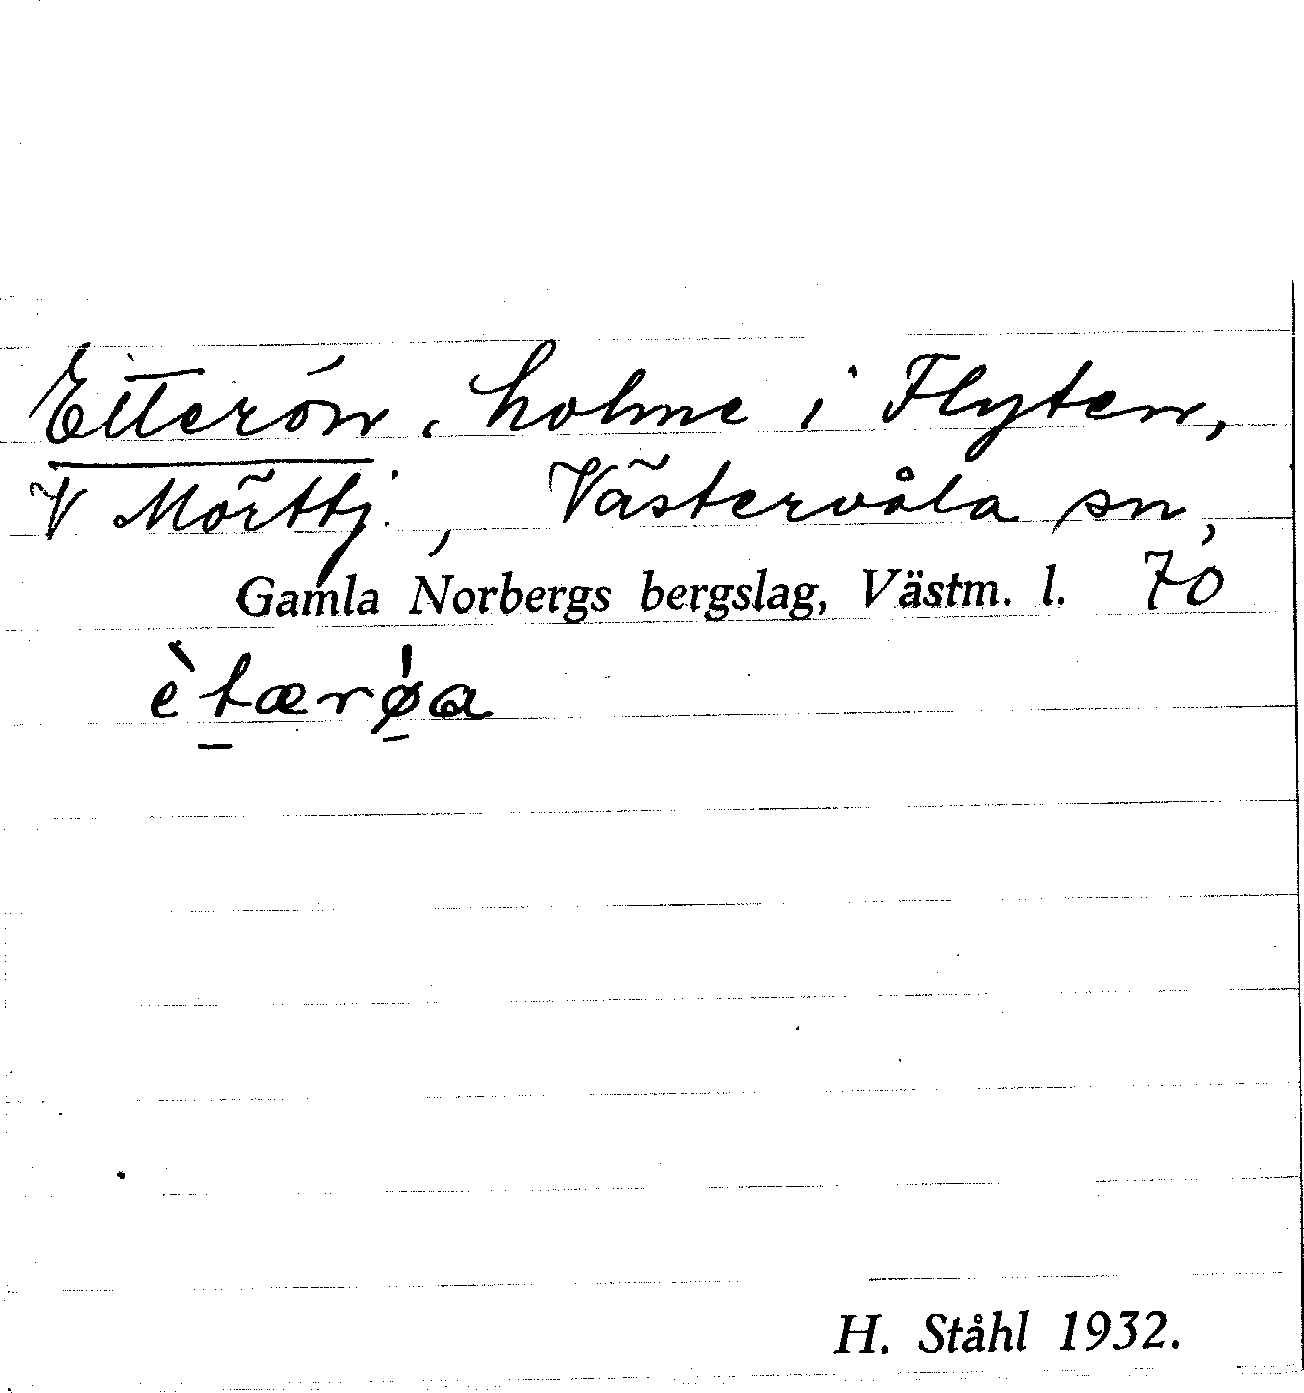 Etterön, holme i Flyten,
V Mörttj., Västervåla sn,
Gamla Norbergs bergslag, Västm. l. 70
è̀tærø̍a
H. Ståhl 1932.